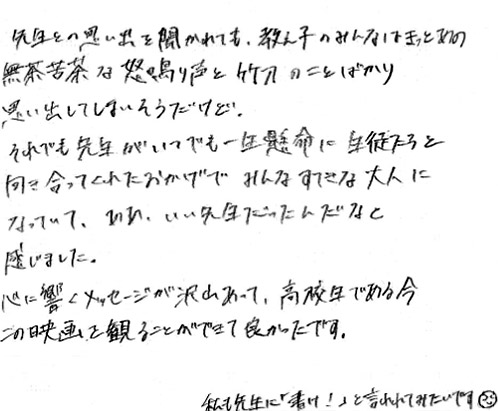 先生との思い出を聞かれても、教え子のみんなはきっとあの
無茶苦茶な怒鳴り声と竹刀のことばかり
思い出してしまいそうだけど。
それでも先生がいつでも一生懸命に生徒たちと
向き合ってくれたおかげでみんなすてきな大人に
なっていて、ああ、いい先生だったんだなと
感じました。
心に響くメッセージが沢山あって、高校生である今
この映画を観ることができて良かったです。
私も先生に「書け！」と言われてみたいです